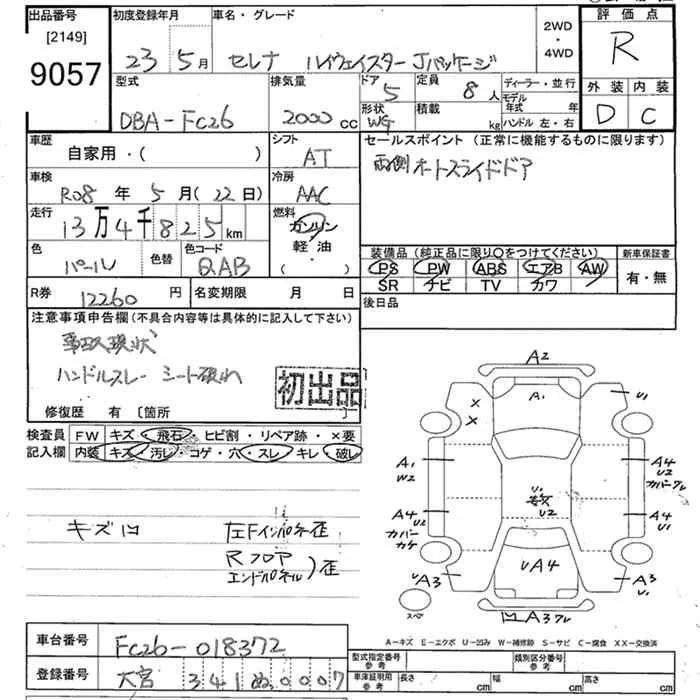 出品番号
[2149]
9057
初度登録年月
23 年 5月
車名・グレード
セレナ ハイウェイスター Jパッケージ
2WD
・
4WD
評価点
R
外装 内装
D C
型式
DBA-FC26
排気量
2000 cc
ドア
5
定員
8人
ディーラー・並行
形状
WG
積載
kg
モデル年式 年
ハンドル 左・右
車歴
自家用・( )
シフト
AT
セールスポイント (正常に機能するものに限ります)
両側オートスライドドア
車検
R08年 5月(22日)
冷房
AAC
走行
13万4千825km
燃料
ガソリン
軽油
( ・ )
色
パール
色替
色コード
QAB
装備品 (純正品に限り○をつけてください)
PS PW ABS エアB AW
SR ナビ TV カワ
新車保証書
有・無
R券
12260 円
名変期限 月 日
後日品
注意事項申告欄 (不具合内容等は具体的に記入して下さい)
事故現状
ハンドルスレ シート破れ
初出品
修復歴 有 〔箇所 〕
検査員
記入欄
FW キズ・飛石・ヒビ割・リペア跡・×要
内装 キズ・汚レ・コゲ・穴・スレ・キレ・破レ
キズ凹
左Fインパネ歪
Rフロア
エンドパネル)歪
A2
A1
X
X
U1
A1
W2
A4
U2
カバーワレ
U1
U2
A4
U2
カバー
カケ
A4
U1
UA4
UA3
A3
U1
スペア
凹A3ワレ
A-キズ E-エクボ U-凹み W-補修跡 S-サビ C-腐食 XX-交換済
車台番号
FC26-018372
登録番号
大宮 341 ぬ 0007
型式指定番号
参考
類別区分番号
参考
車庫証明用
参考
長さ cm
幅 cm
高さ cm